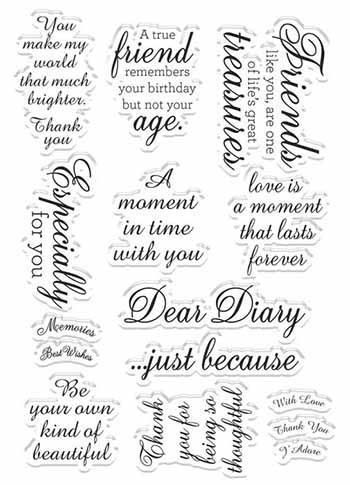 You
make my
world
that much
brighter.
Thank
you
A true
friend
remembers
your birthday
but not your
age.
Friends
like you, are one
of life's great
treasures
Especially
for you
A
moment
in time
with you
love is
a moment
that lasts
forever
Dear Diary
...just because
Memories
Best Wishes
Be
your own
kind of
beautiful
Thank
you for
being so
thoughtful
With Love
Thank You
J'Adore